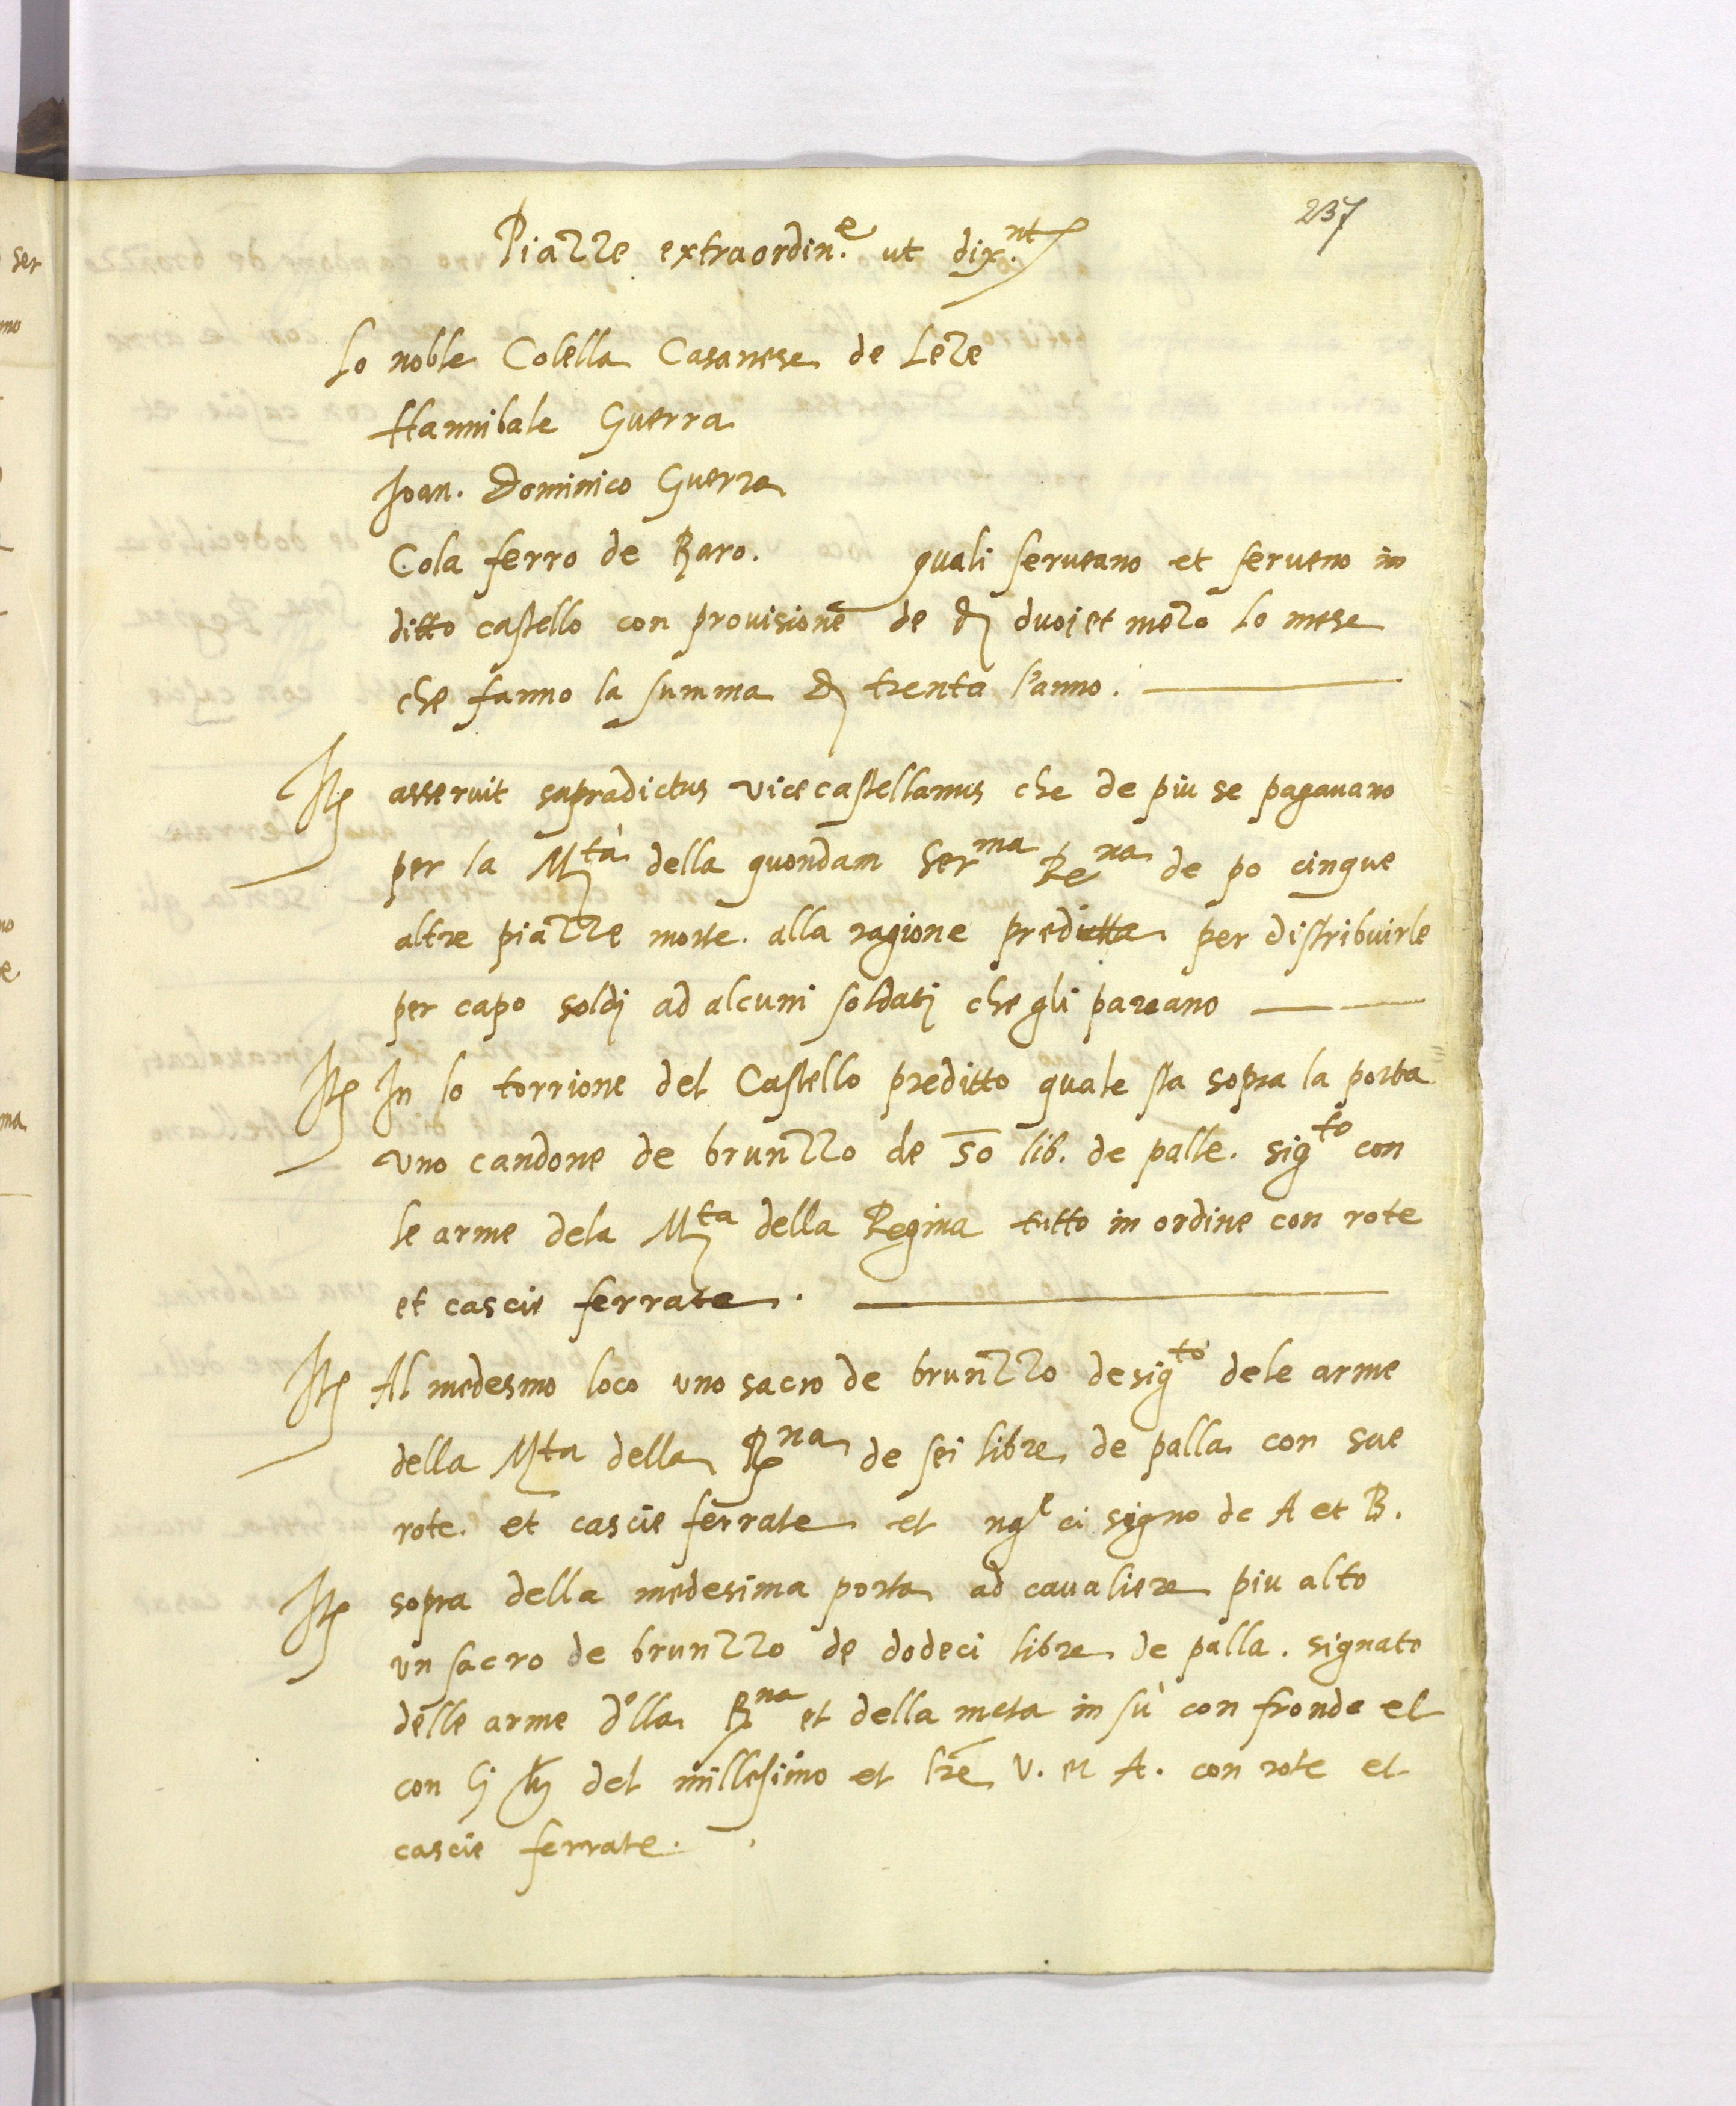 237
Piazze extraordin.e ut dix.nt
Lo noble Colella Casanese de Leze
Hannibale Guerra
Joan. Dominico Guerra
Cola ferro de Baro. quali serveano et serveno in
ditto castello con provisione de duoi et mezo lo mese
che fanno la summa trenta l'anno.
It asseruit supradictus vicecastellanus che de piu se pagavano
per la Mta della quondam Serma Rena de po cinque
altre piazze morte. alla ragione preditta per distribuirle
per capo soldi ad alcuni soldati che gli pareano
It In lo torrione del Castello preditto quale sta sopra la porta
uno candone de brunzzo de 50 lib. de palle. sigto con
le arme dela Mta della Regina tutto in ordine con rote
et cascie ferrate.
It Al medesmo loco uno sacro de brunzzo desigto dele arme
della Mta della Rna de sei libre de palla con sue
rote. et cascie ferrate et ci signo de A et B.
It sopra della medesima porta ad cavaliere piu alto
un sacro de brunzzo de dodeci libre de palla. signato
delle arme d'lla Rna et della meta in sù con fronde et
con li del millesimo et lre V. et A. con rote et
cascie ferrate.
ser
mo
no
e
ma